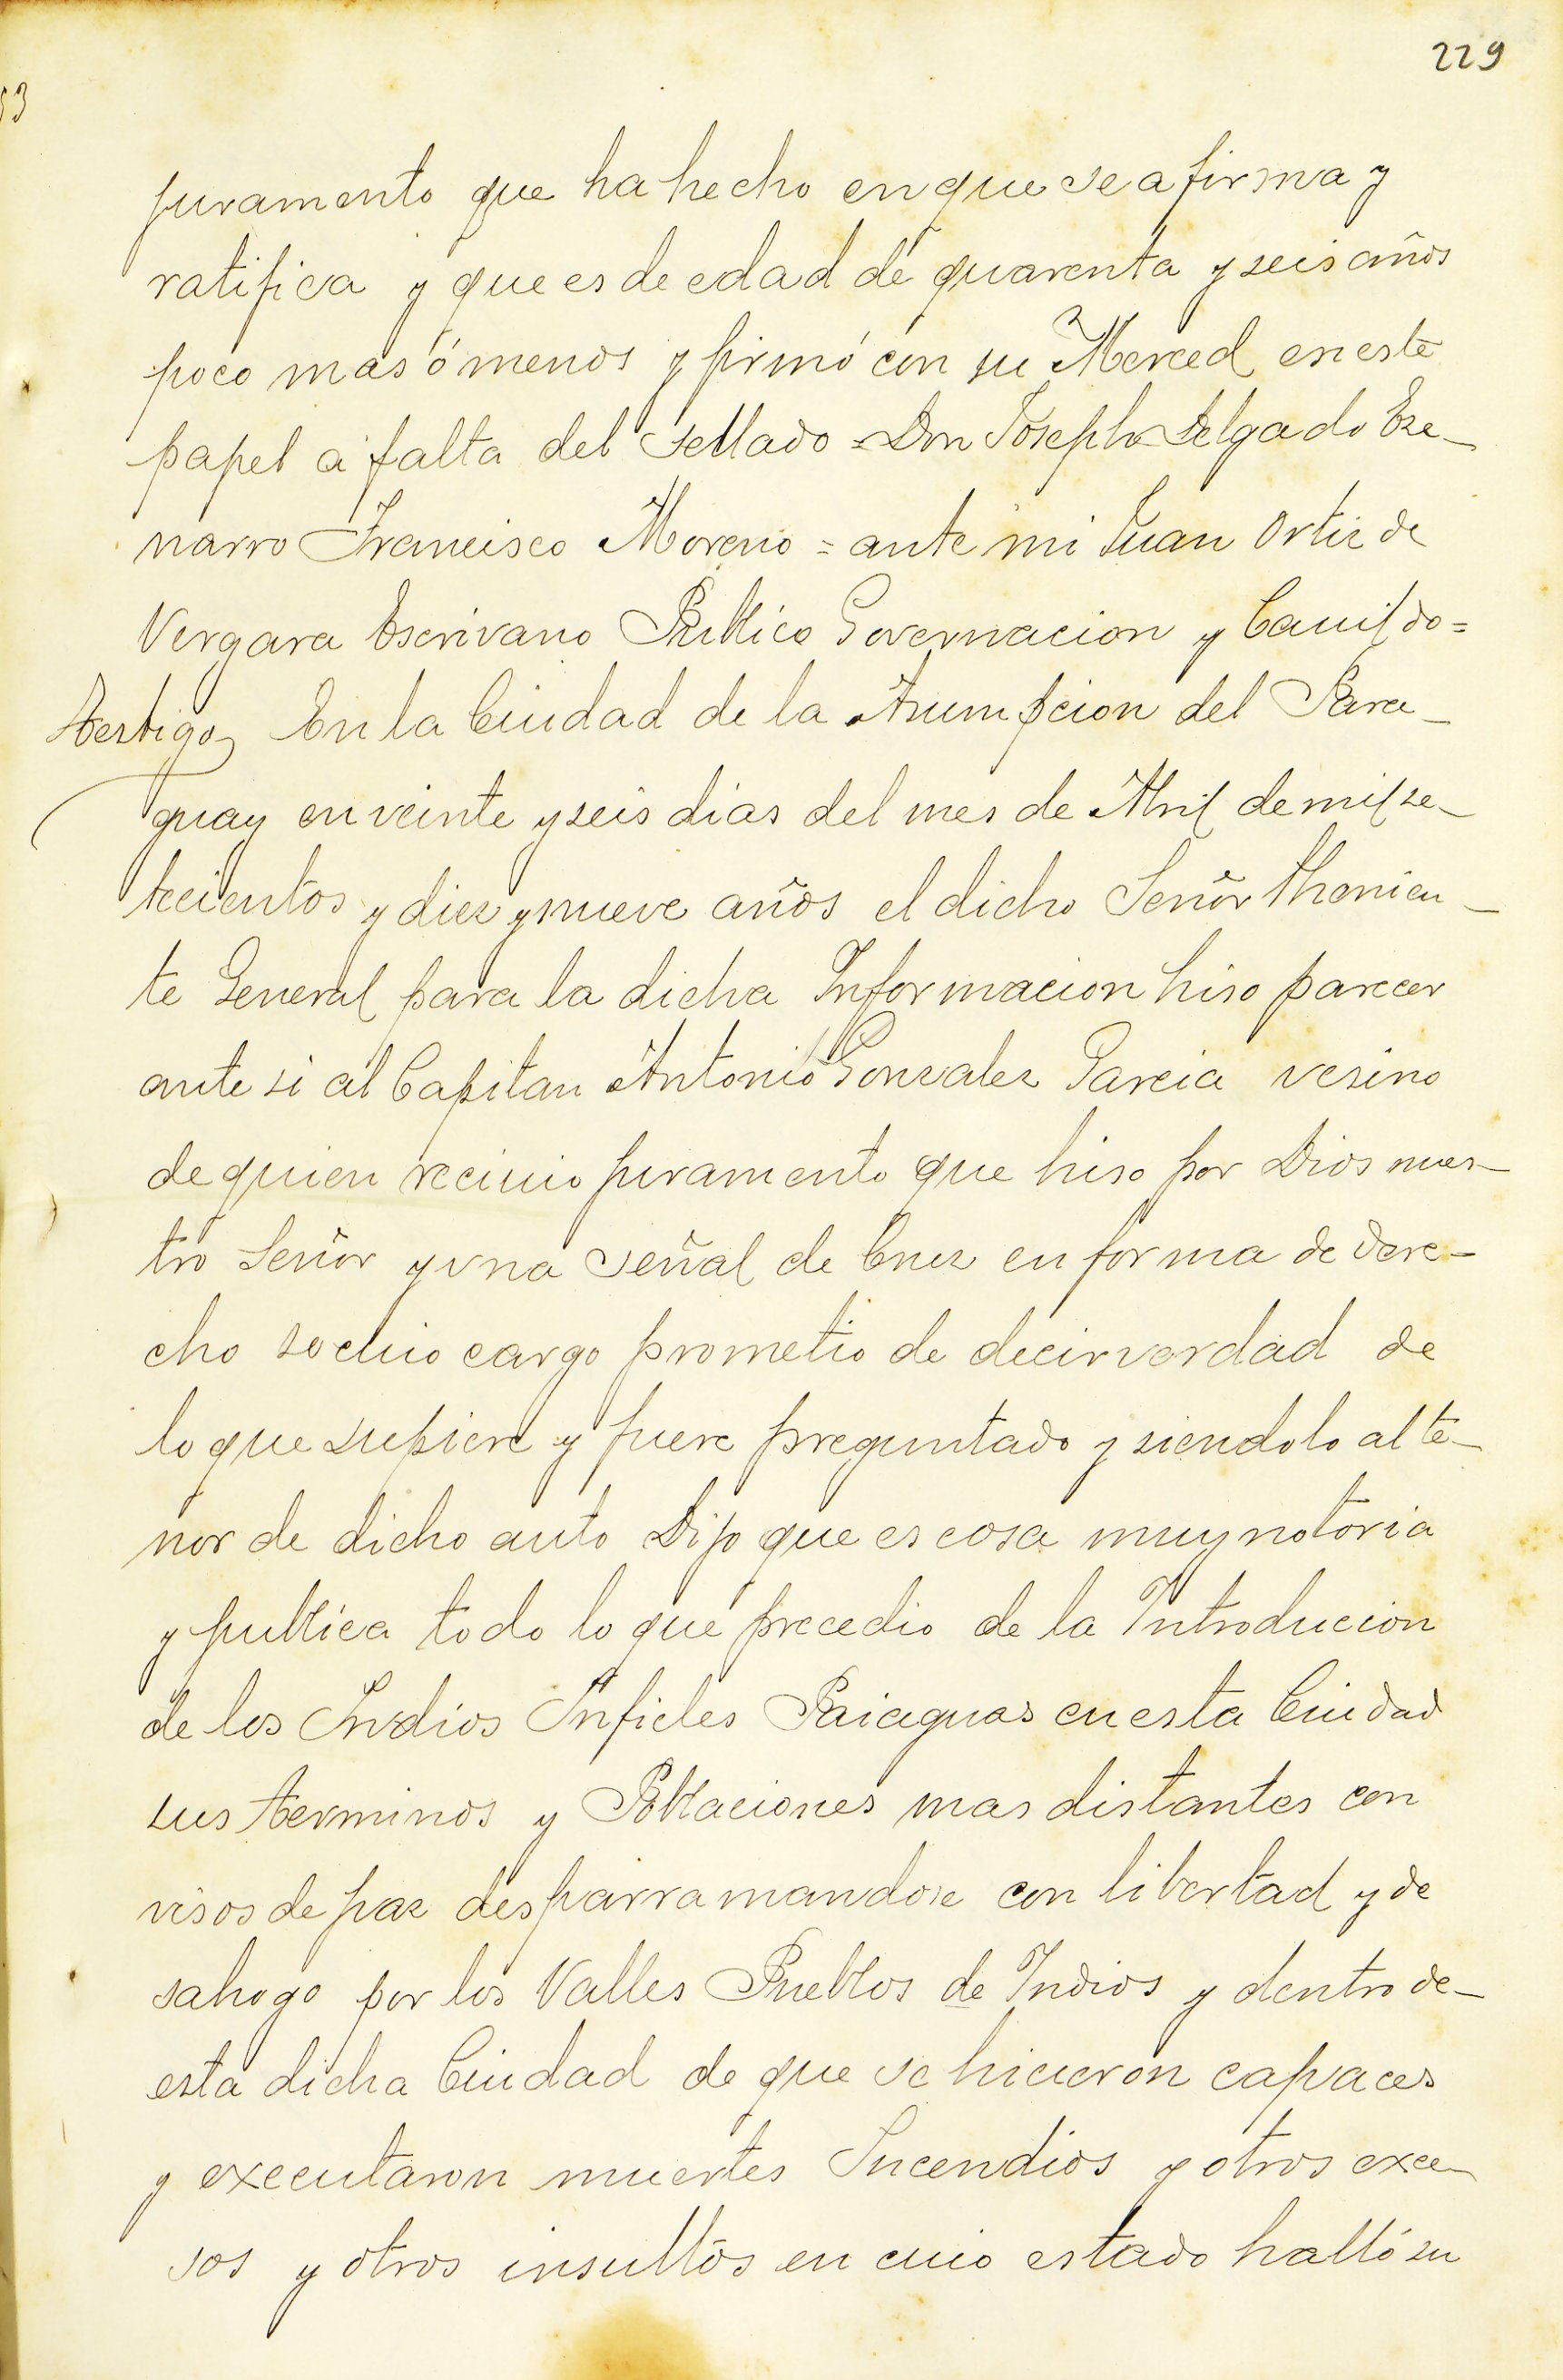 229
53
juramento que ha hecho en que se afirma y
ratifica y que es de edad de quarenta y seis años
poco mas ó menos y firmó con su Merced en este
papel a falta del sellado = Don Joseph Delgado Eze-
narro Francisco Moreno = ante mi Juan Ortiz de
Vergara Escrivano Publico Governacion y Cauildo =
Testigo En la Ciudad de la Asumpcion del Para-
guay en veinte y seis dias del mes de Abril de mil se-
tecientos y diez y nueve años el dicho Señor Thenien-
te General para la dicha Informacion hiso parecer
ante si al Capitan Antonio Gonzalez Garcia vesino
de quien reciuio juramento que hiso por Dios nues-
tro Señor y vna señal de Cruz en forma de dere-
cho so cuio cargo prometio de decir verdad de
lo que supiere y fuere preguntado y siendolo al te-
nor de dicho auto Dijo que es cosa muy notoria
y publica todo lo que precedio de la Introducion
de los Indios Infieles Paiaguas en esta Ciudad
sus terminos y Poblaciones mas distantes con
visos de paz desparramandose con libertad y de
sahogo por los Valles Pueblos de Indios y dentro de-
esta dicha Ciudad de que se hicieron capaces
y executaron muertes Incendios y otros exce-
sos y otros insultos en cuio estado halló su